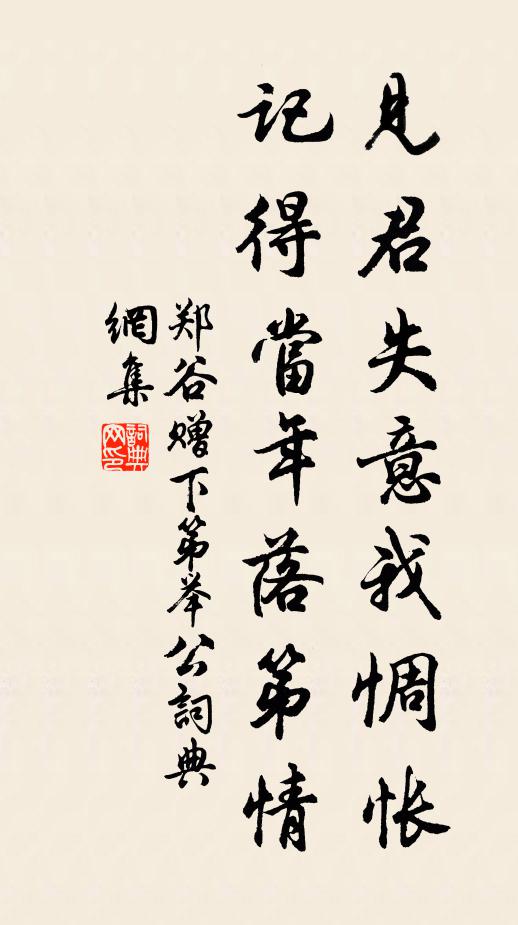 见君失意我惆怅
记得當年落第情
郑谷赠下第举公詞典
網集
詞典網印